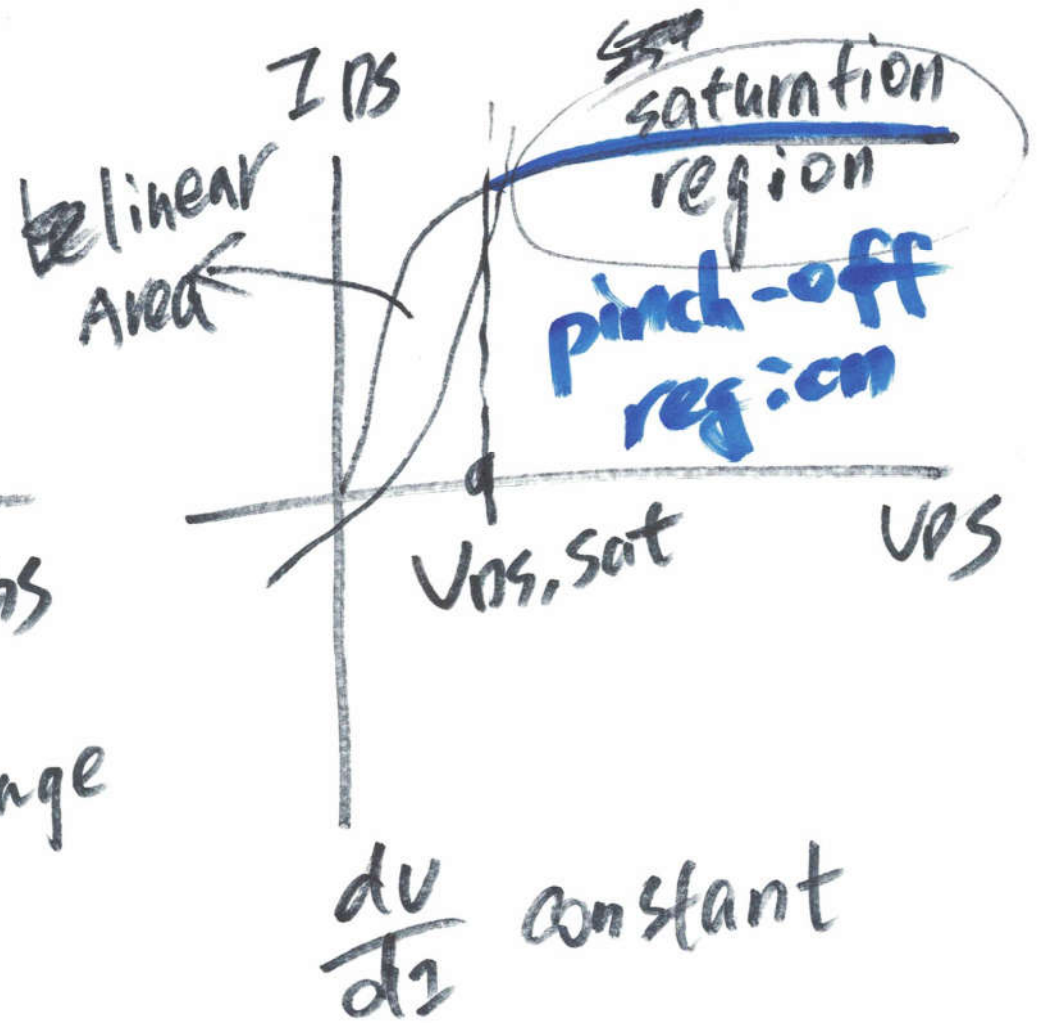 IDS
saturation
region
linear
Area
pinch-off
region
VDS, sat
VDS
dv
dI
constant